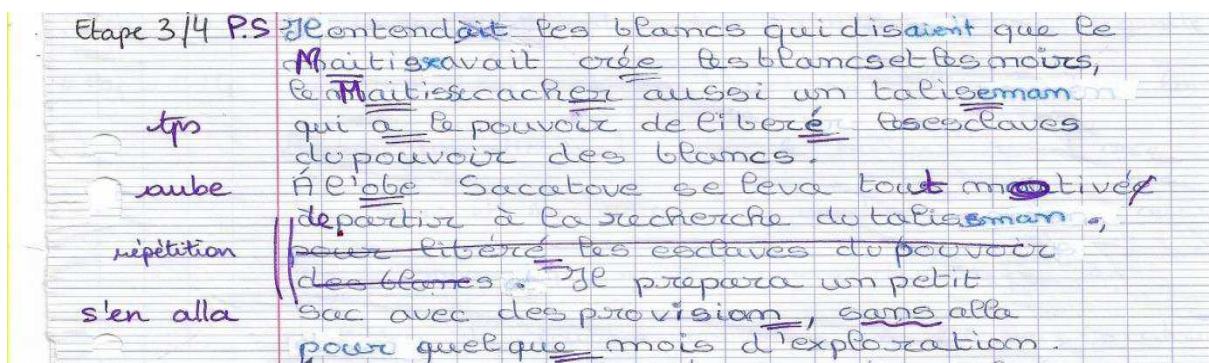 Etape 3/4 P.S Il entendait les blancs qui disaient que le
Maitisse avait crée les blancs et les noirs,
le Maitisse cacher aussi un taliseman
tps qui a le pouvoir de liberé les esclaves
du pouvoir des blancs.
aube À l'obe Sacatove se leva tout motivé
de partir à la recherche du talisman,
répétition pour libéré les esclaves du pouvoir
des blancs. Il prepara un petit
s'en alla sac avec des provision, sans alla
pour quelque mois d'exploration.